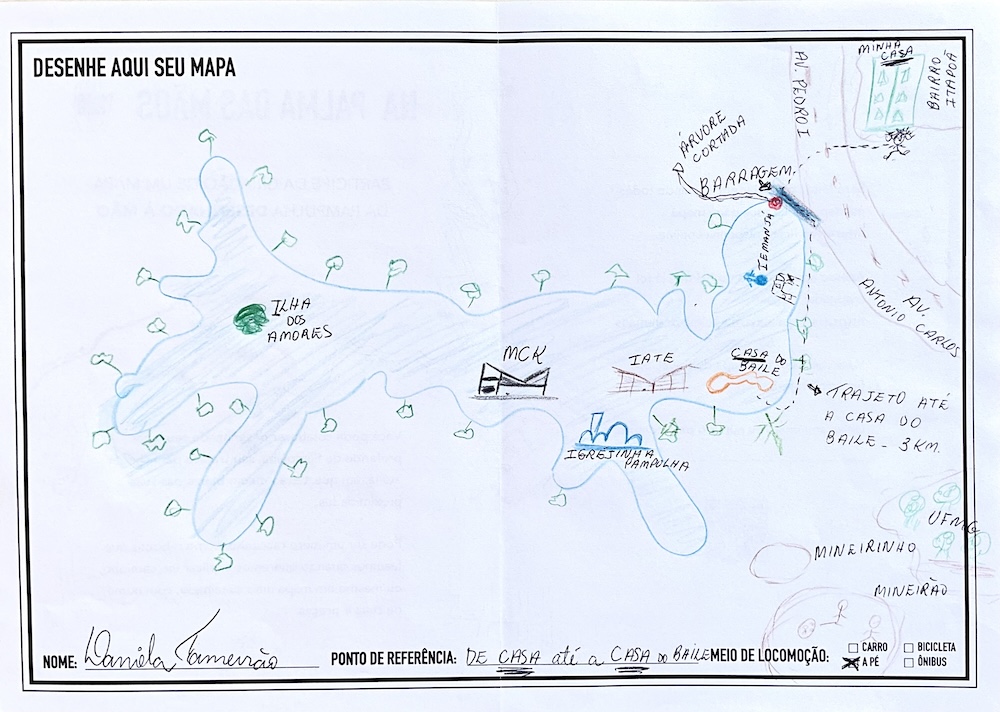 DESENHE AQUI SEU MAPA
MINHA
CASA
BAIRRO
ITAPOÃ
AV. PEDRO I
ÁRVORE
CORTADA
BARRAGEM.
IEMANJÁ
AV.
ANTONIO CARLOS
ILHA
DOS
AMORES
MCK
IATE
CASA DO
BAILE
TRAJETO ATÉ
A CASA DO
BAILE - 3KM.
IGREJINHA
PAMPULHA
UFMG
MINEIRINHO
MINEIRÃO
NOME: Daniela Tameirão
PONTO DE REFERÊNCIA: DE CASA até a CASA DO BAILE
MEIO DE LOCOMOÇÃO:
CARRO
BICICLETA
A PÉ
ÔNIBUS